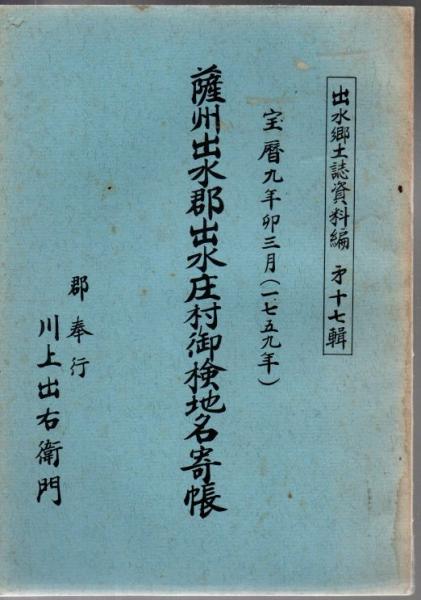 出水郷土誌資料編 㐧十七輯
宝暦九年卯三月(一七五九年)
薩州出水郡出水庄村御検地名寄帳
郡奉行
川上出右衛門